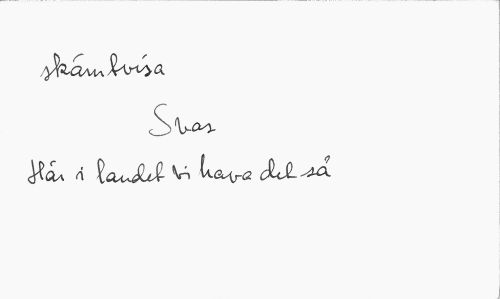 skämtvisa
Svar
Här i landet vi hava det så